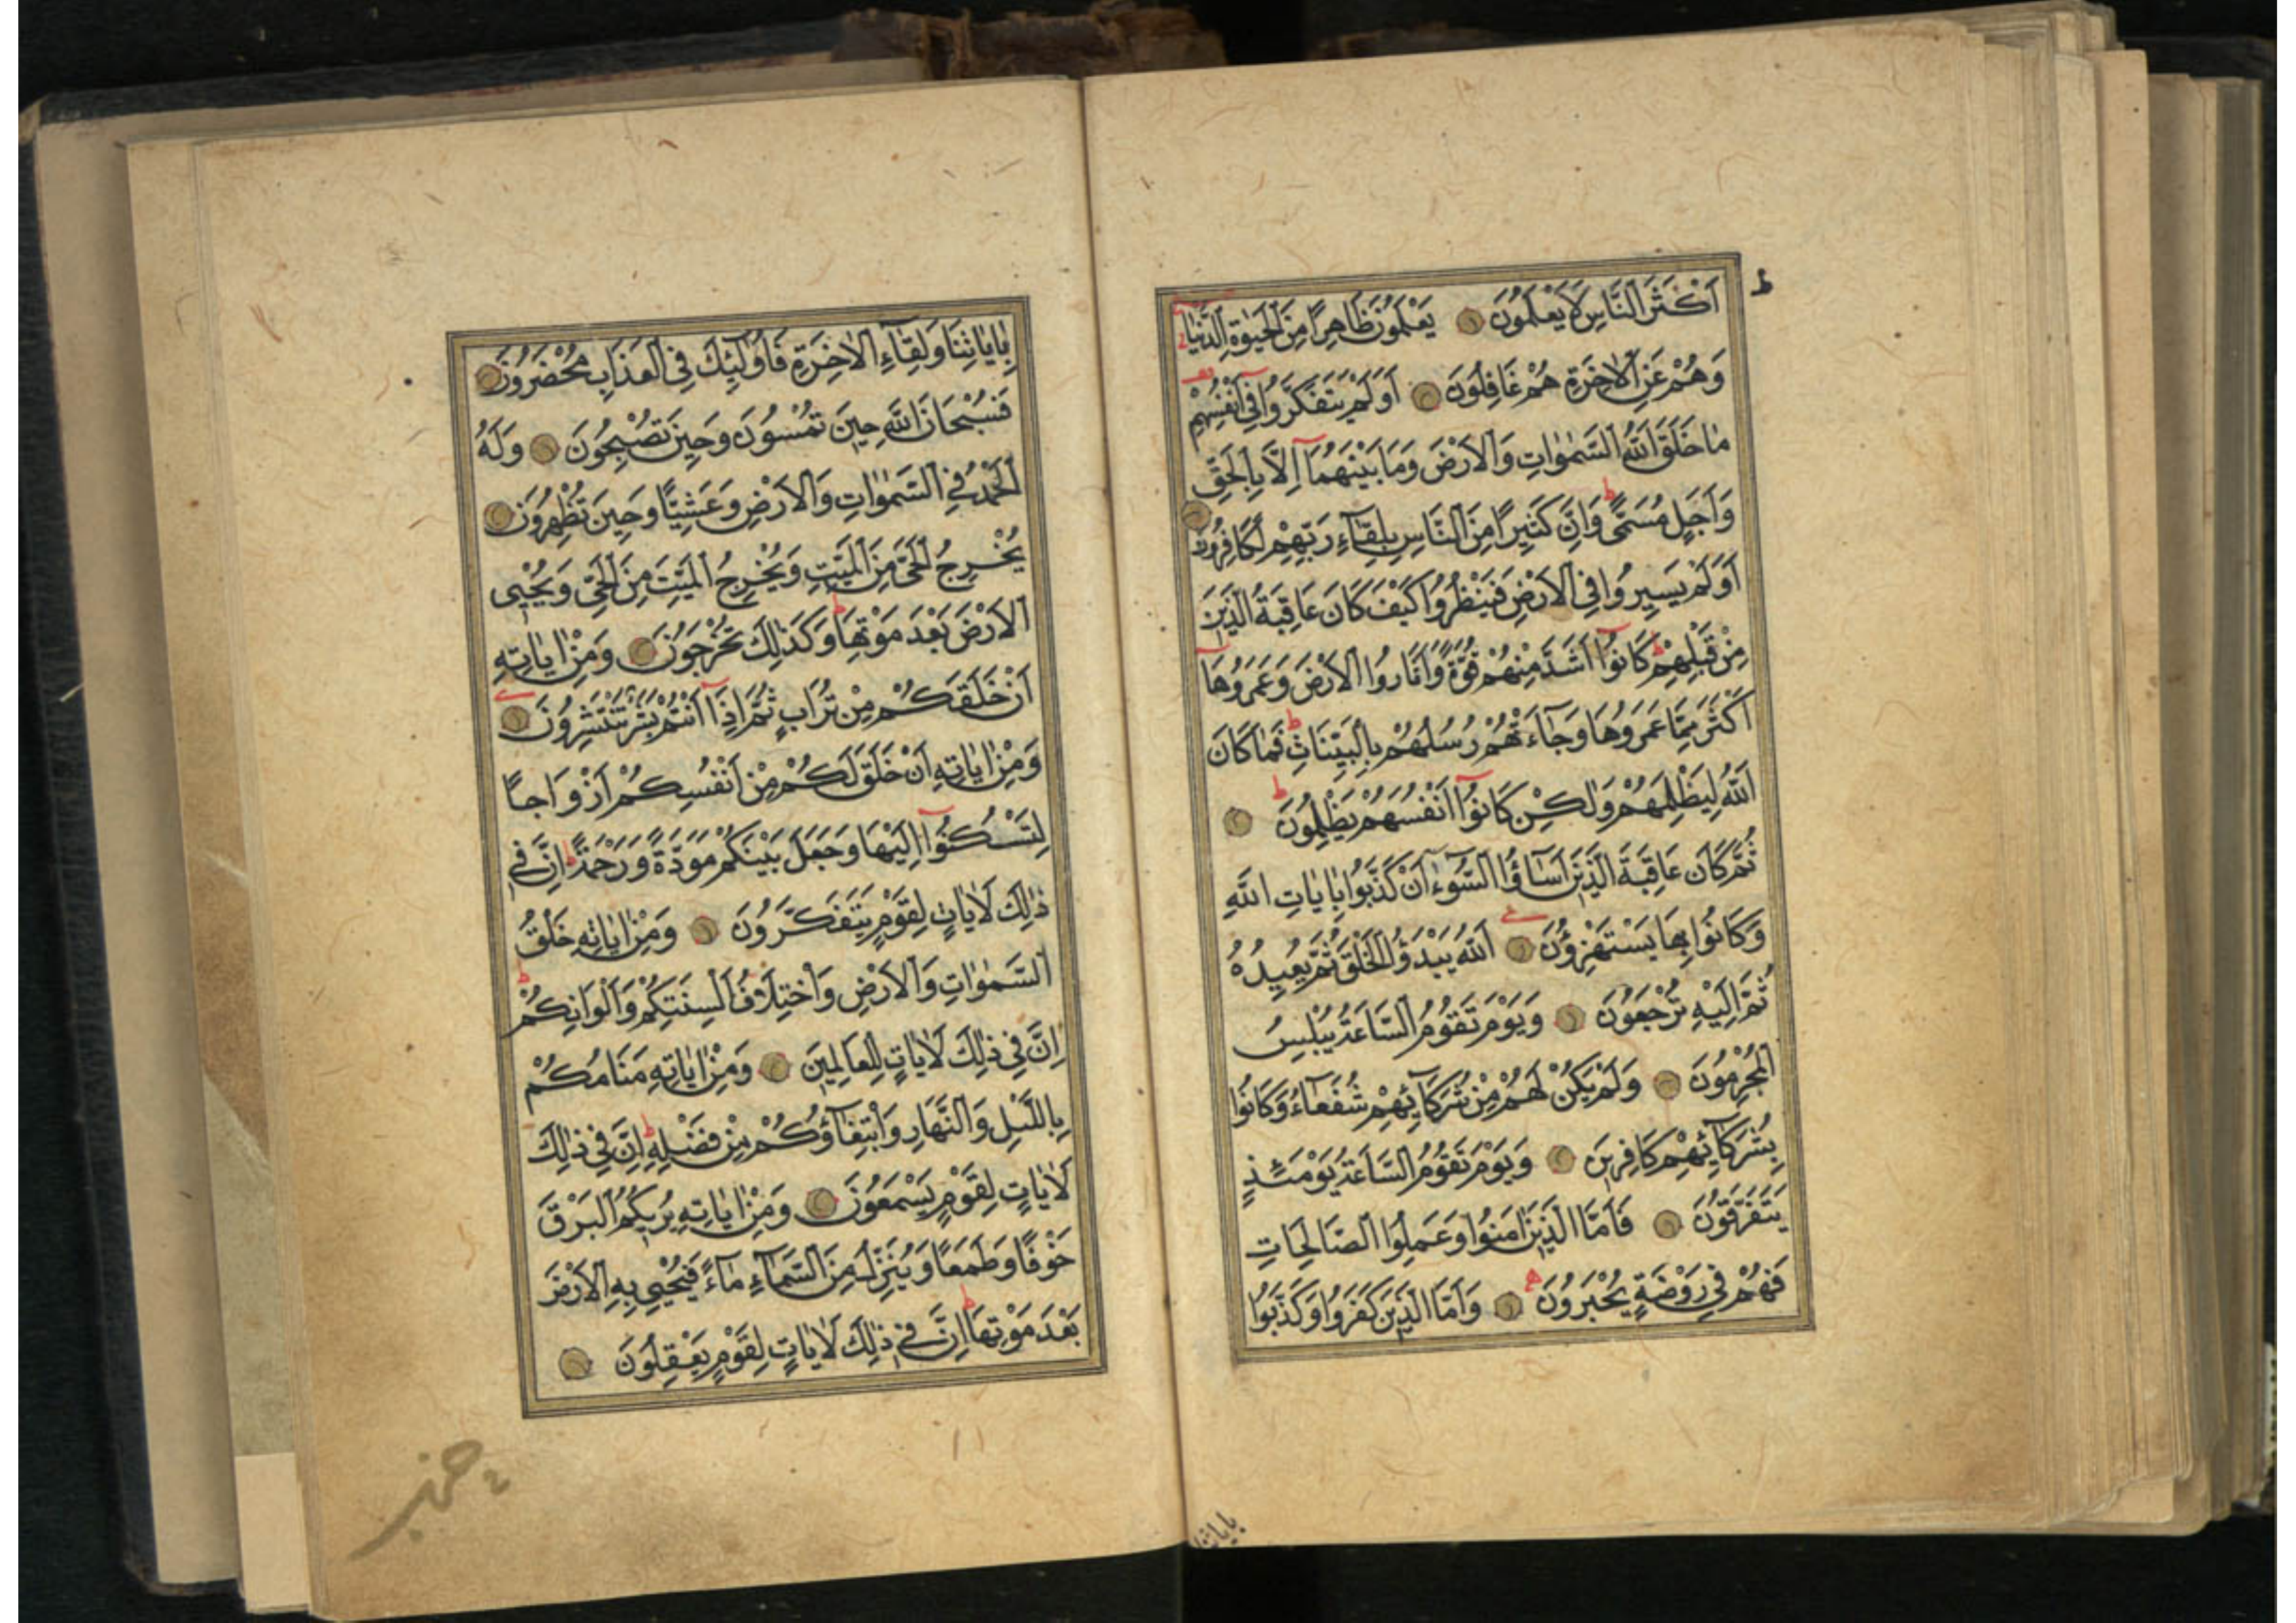 اَكْثَرَ النَّاسِ لَا يَعْلَمُونَ يَعْلَمُونَ ظَاهِرًا مِنَ الْحَيٰوةِ الدُّنْيَا
وَهُمْ عَنِ الْاٰخِرَةِ هُمْ غَافِلُونَ اَوَلَمْ يَتَفَكَّرُوا فٓى اَنْفُسِهِمْ
مَا خَلَقَ اللّٰهُ السَّمٰوَاتِ وَالْاَرْضَ وَمَا بَيْنَهُمَٓا اِلَّا بِالْحَقِّ
وَاَجَلٍ مُسَمًّىۜ وَاِنَّ كَثِيرًا مِنَ النَّاسِ بِلِقَٓاءِ رَبِّهِمْ لَكَافِرُونَ
اَوَلَمْ يَسِيرُوا فِى الْاَرْضِ فَيَنْظُرُوا كَيْفَ كَانَ عَاقِبَةُ الَّذِينَ
مِنْ قَبْلِهِمْۜ كَانُٓوا اَشَدَّ مِنْهُمْ قُوَّةً وَاَثَارُوا الْاَرْضَ وَعَمَرُوهَٓا
اَكْثَرَ مِمَّا عَمَرُوهَا وَجَٓاءَتْهُمْ رُسُلُهُمْ بِالْبَيِّنَاتِۜ فَمَا كَانَ
اللّٰهُ لِيَظْلِمَهُمْ وَلٰكِنْ كَانُٓوا اَنْفُسَهُمْ يَظْلِمُونَۜ
ثُمَّ كَانَ عَاقِبَةَ الَّذِينَ اَسَٓاؤُا السُّٓوءٰٓ اَنْ كَذَّبُوا بِاٰيَاتِ اللّٰهِ
وَكَانُوا بِهَا يَسْتَهْزِؤُنَ اَللّٰهُ يَبْدَؤُا الْخَلْقَ ثُمَّ يُعِيدُهُ
ثُمَّ اِلَيْهِ تُرْجَعُونَ وَيَوْمَ تَقُومُ السَّاعَةُ يُبْلِسُ
الْمُجْرِمُونَ وَلَمْ يَكُنْ لَهُمْ مِنْ شُرَكَٓائِهِمْ شُفَعَٓاءُ وَكَانُوا
بِشُرَكَٓائِهِمْ كَافِرِينَ وَيَوْمَ تَقُومُ السَّاعَةُ يَوْمَئِذٍ
يَتَفَرَّقُونَ فَاَمَّا الَّذِينَ اٰمَنُوا وَعَمِلُوا الصَّالِحَاتِ
فَهُمْ فِى رَوْضَةٍ يُحْبَرُونَ وَاَمَّا الَّذِينَ كَفَرُوا وَكَذَّبُوا
بِاٰيَاتِنَا وَلِقَٓاءِ الْاٰخِرَةِ فَاُولٰٓئِكَ فِى الْعَذَابِ مُحْضَرُونَ
فَسُبْحَانَ اللّٰهِ حِينَ تُمْسُونَ وَحِينَ تُصْبِحُونَ وَلَهُ
الْحَمْدُ فِى السَّمٰوَاتِ وَالْاَرْضِ وَعَشِيًّا وَحِينَ تُظْهِرُونَ
يُخْرِجُ الْحَىَّ مِنَ الْمَيِّتِ وَيُخْرِجُ الْمَيِّتَ مِنَ الْحَىِّ وَيُحْيِى
الْاَرْضَ بَعْدَ مَوْتِهَاۜ وَكَذٰلِكَ تُخْرَجُونَ وَمِنْ اٰيَاتِهِ
اَنْ خَلَقَكُمْ مِنْ تُرَابٍ ثُمَّ اِذَٓا اَنْتُمْ بَشَرٌ تَنْتَشِرُونَ
وَمِنْ اٰيَاتِهِ اَنْ خَلَقَ لَكُمْ مِنْ اَنْفُسِكُمْ اَزْوَاجًا
لِتَسْكُنُٓوا اِلَيْهَا وَجَعَلَ بَيْنَكُمْ مَوَدَّةً وَرَحْمَةًۜ اِنَّ فِى
ذٰلِكَ لَاٰيَاتٍ لِقَوْمٍ يَتَفَكَّرُونَ وَمِنْ اٰيَاتِهِ خَلْقُ
السَّمٰوَاتِ وَالْاَرْضِ وَاخْتِلَافُ اَلْسِنَتِكُمْ وَاَلْوَانِكُمْۜ
اِنَّ فِى ذٰلِكَ لَاٰيَاتٍ لِلْعَالِمِينَ وَمِنْ اٰيَاتِهِ مَنَامُكُمْ
بِالَّيْلِ وَالنَّهَارِ وَابْتِغَٓاؤُكُمْ مِنْ فَضْلِهِۜ اِنَّ فِى ذٰلِكَ
لَاٰيَاتٍ لِقَوْمٍ يَسْمَعُونَ وَمِنْ اٰيَاتِهِ يُرِيكُمُ الْبَرْقَ
خَوْفًا وَطَمَعًا وَيُنَزِّلُ مِنَ السَّمَٓاءِ مَٓاءً فَيُحْيِى بِهِ الْاَرْضَ
بَعْدَ مَوْتِهَاۜ اِنَّ فِى ذٰلِكَ لَاٰيَاتٍ لِقَوْمٍ يَعْقِلُونَ